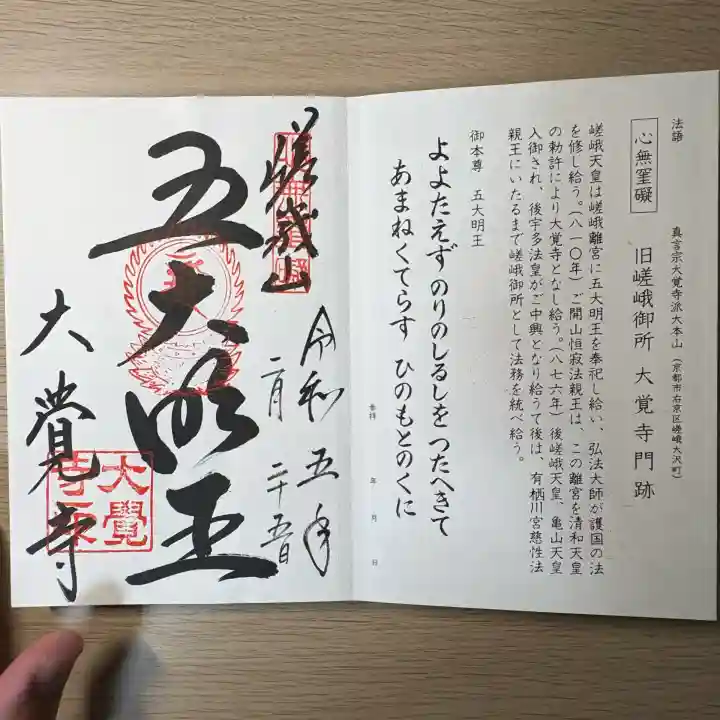 法語
心無罣礙
真言宗大覚寺派大本山(京都市右京区嵯峨大沢町)
旧嵯峨御所 大覚寺門跡
嵯峨天皇は嵯峨離宮に五大明王を奉祀し給い、弘法大師が護国の法
を修し給う。(八一〇年)ご開山恒寂法親王は、この離宮を清和天皇
の勅許により大覚寺となし給う。(八七六年)後嵯峨天皇、亀山天皇
入御され、後宇多法皇がご中興となり給うて後は、有栖川宮慈性法
親王にいたるまで嵯峨御所として法務を統べ給う。
御本尊 五大明王
よよたえず のりのしるしを つたへきて
あまねくてらす ひのもとのくに
参拝 年 月 日
嵯峨山
令和五年
二月二十五日
五大明王
大覺寺
大覺
寺